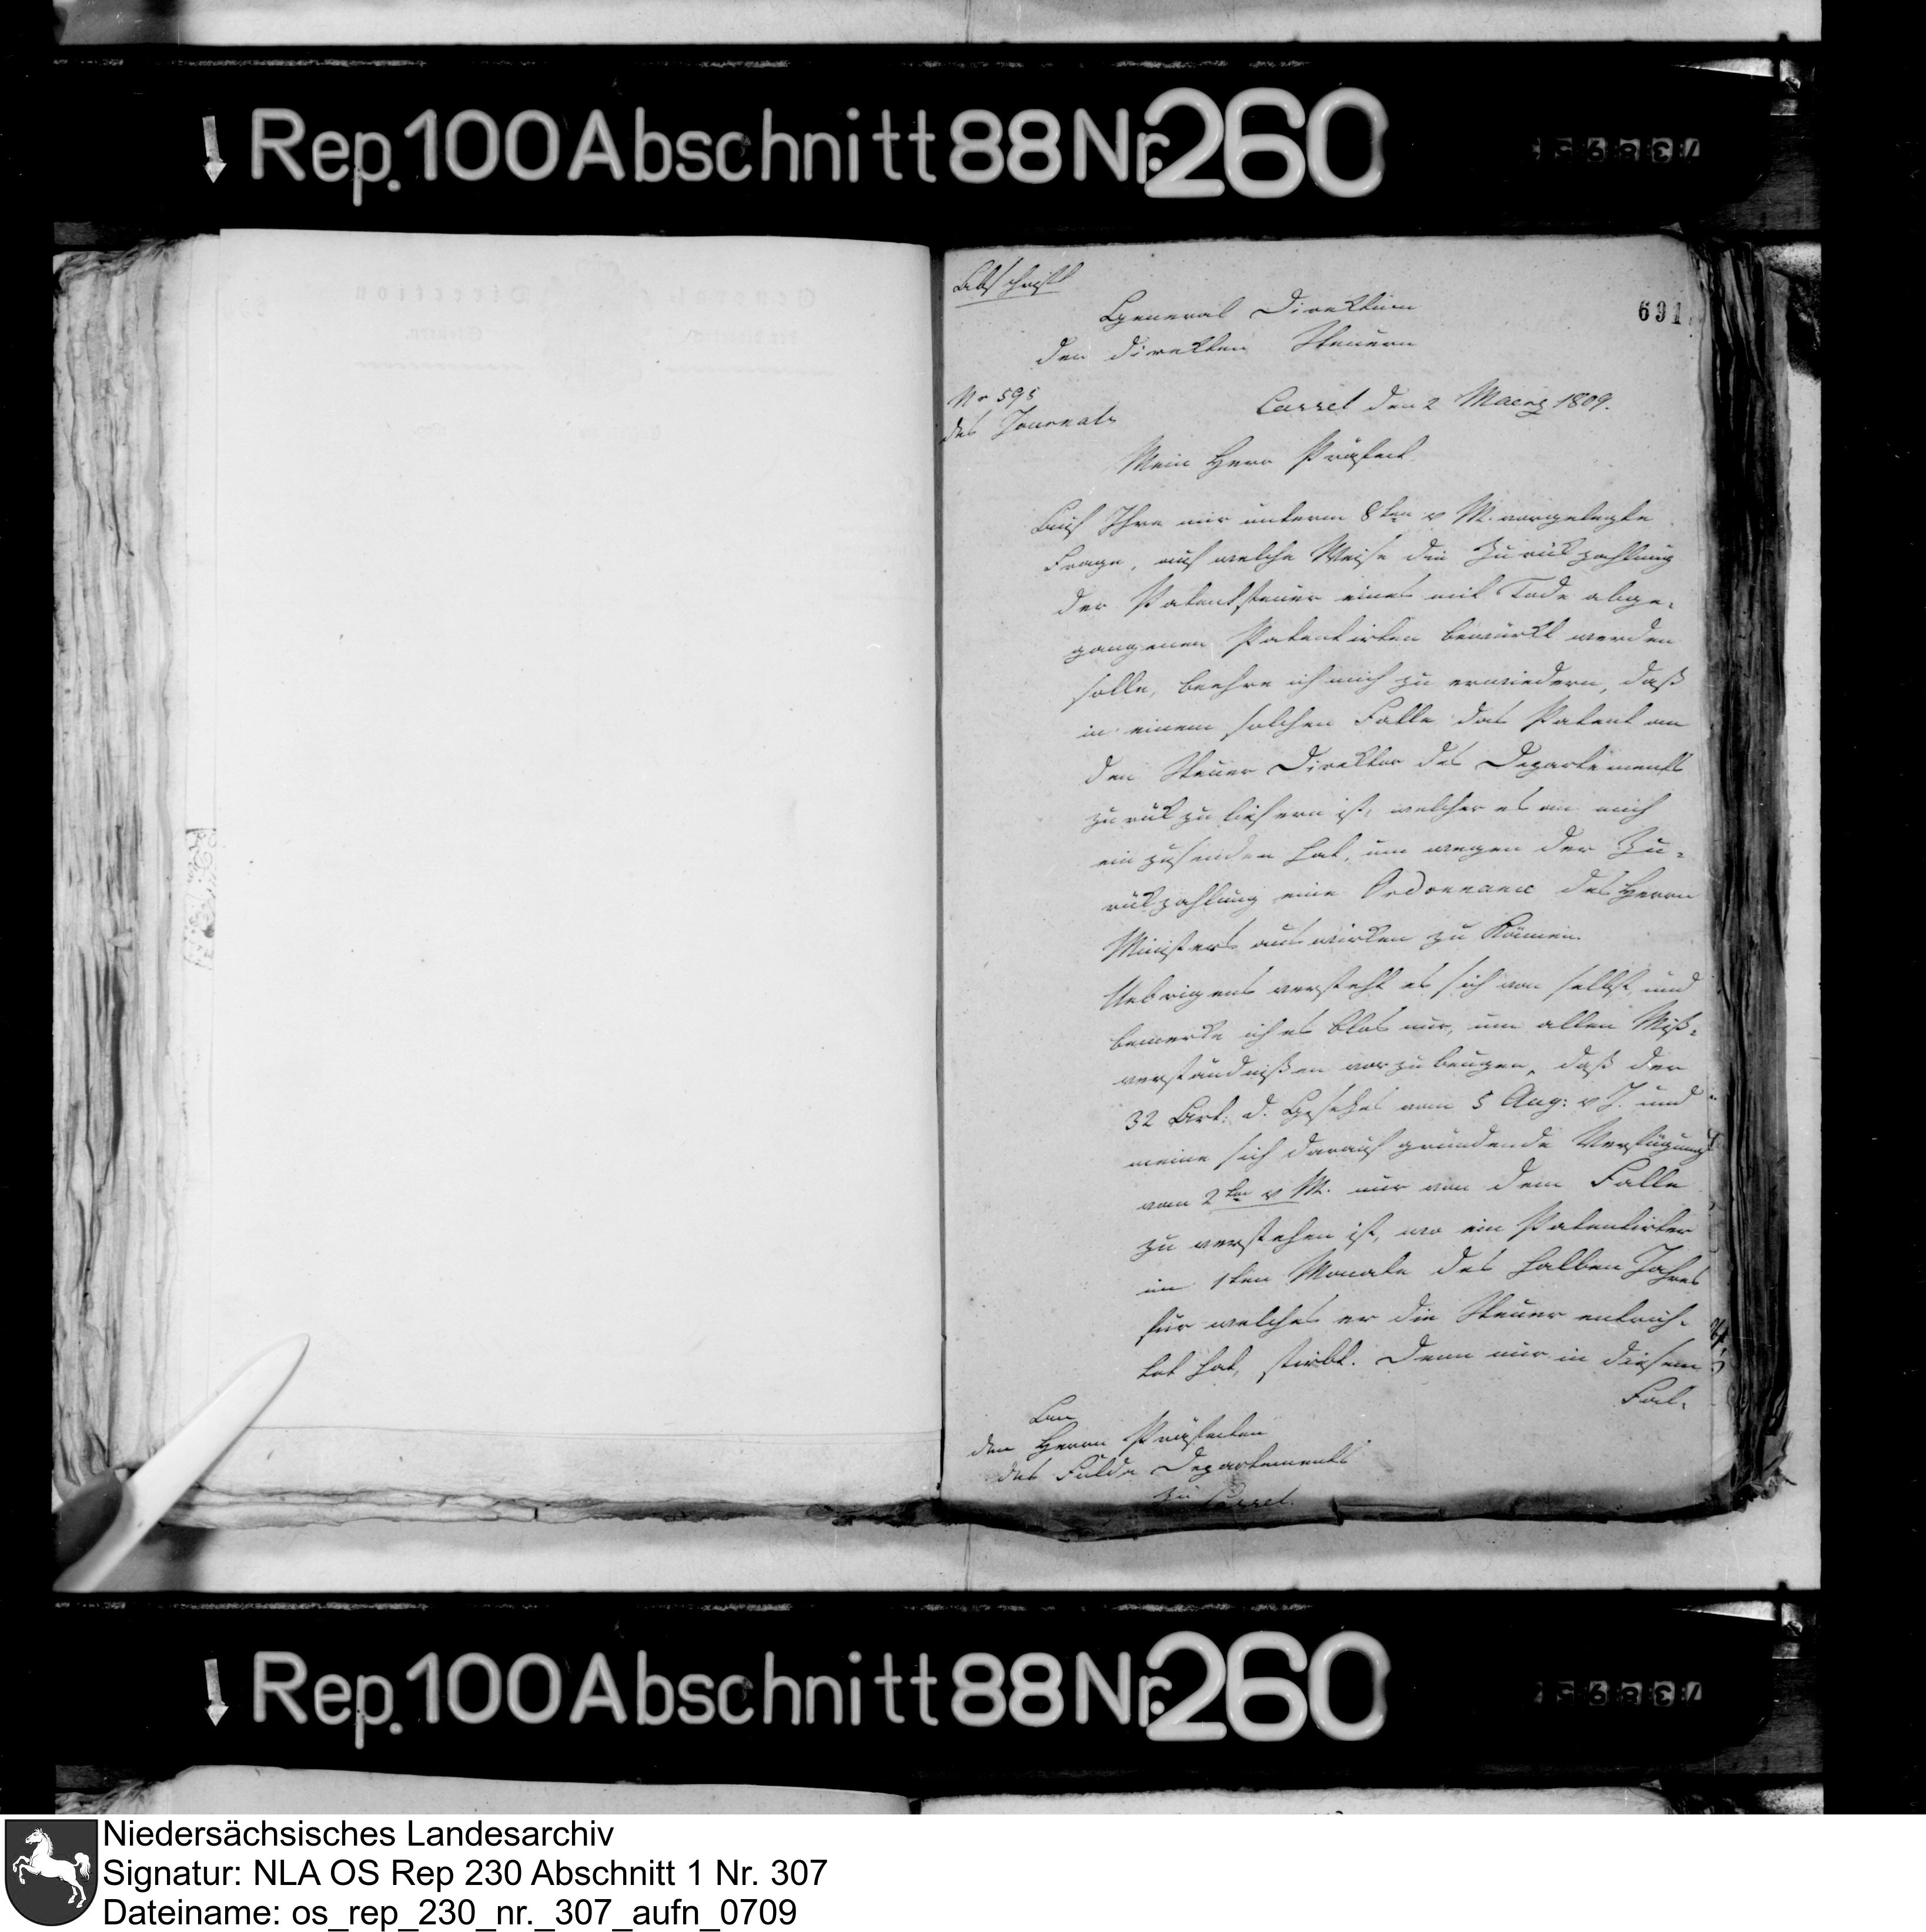 Rep. 100 Abschnitt 88 Nr. 260
Abschrift
691
General Direktion
der direkten Steuern
Nr 595
des Journals
Cassel den 2 Maerz 1809.
Mein Herr Präfect
Auf Ihre mir unterm 8ten v M. vorgelegte
Frage, auf welche Weise die Zurükzahlung
der Patentsteuer eines mit Tode abge-
gangenen Patentirten bewürkt werden
solle, beehre ich mich zu erwiedern, daß
in einem solchen Falle das Patent an
den Steuer Direktor des Departements
zurükzuliefern ist, welcher es an mich
einzusenden hat, um wegen der Zu-
rükzahlung eine Ordonnance des Herrn
Ministers auswirken zu können.
Uebrigens versteht es sich von selbst, und
bemerke ich es blos nur, um allen Miß-
verständnißen vorzubeugen, daß der
32 Art: d. Gesetzes vom 5 Aug: v J. und
meine sich darauf gründende Verfügung
vom 2ten v M. nur von dem Falle
zu verstehen ist, wo ein Patentirter
im 1ten Monate des halben Jahres
für welches er die Steuer entrich-
tet hat, stirbt. Denn nur in diesem
Fal-
An
den Herrn Präfecten
des Fulda Departements
zu Cassel.
Rep. 100 Abschnitt 88 Nr. 260
Niedersächsisches Landesarchiv
Signatur: NLA OS Rep 230 Abschnitt 1 Nr. 307
Dateiname: os_rep_230_nr._307_aufn_0709